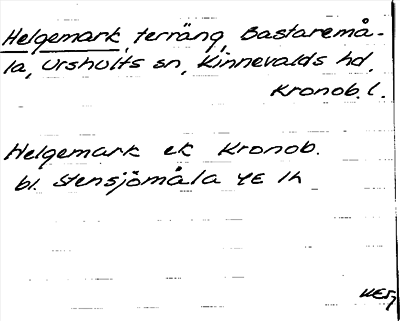 Helgemark, terräng, Bastaremå-
la, Urshults sn, Kinnevalds hd,
Kronob. l.
Helgemark ek Kronob.
bl. Stensjömåla 4E 1h